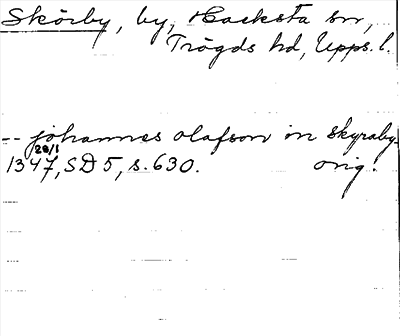 Skörby, by, Hacksta sn,
Trögds hd, Upps. l.
-- johannes olafson in skyraby
28/1
1347, SD 5, s. 630. orig.